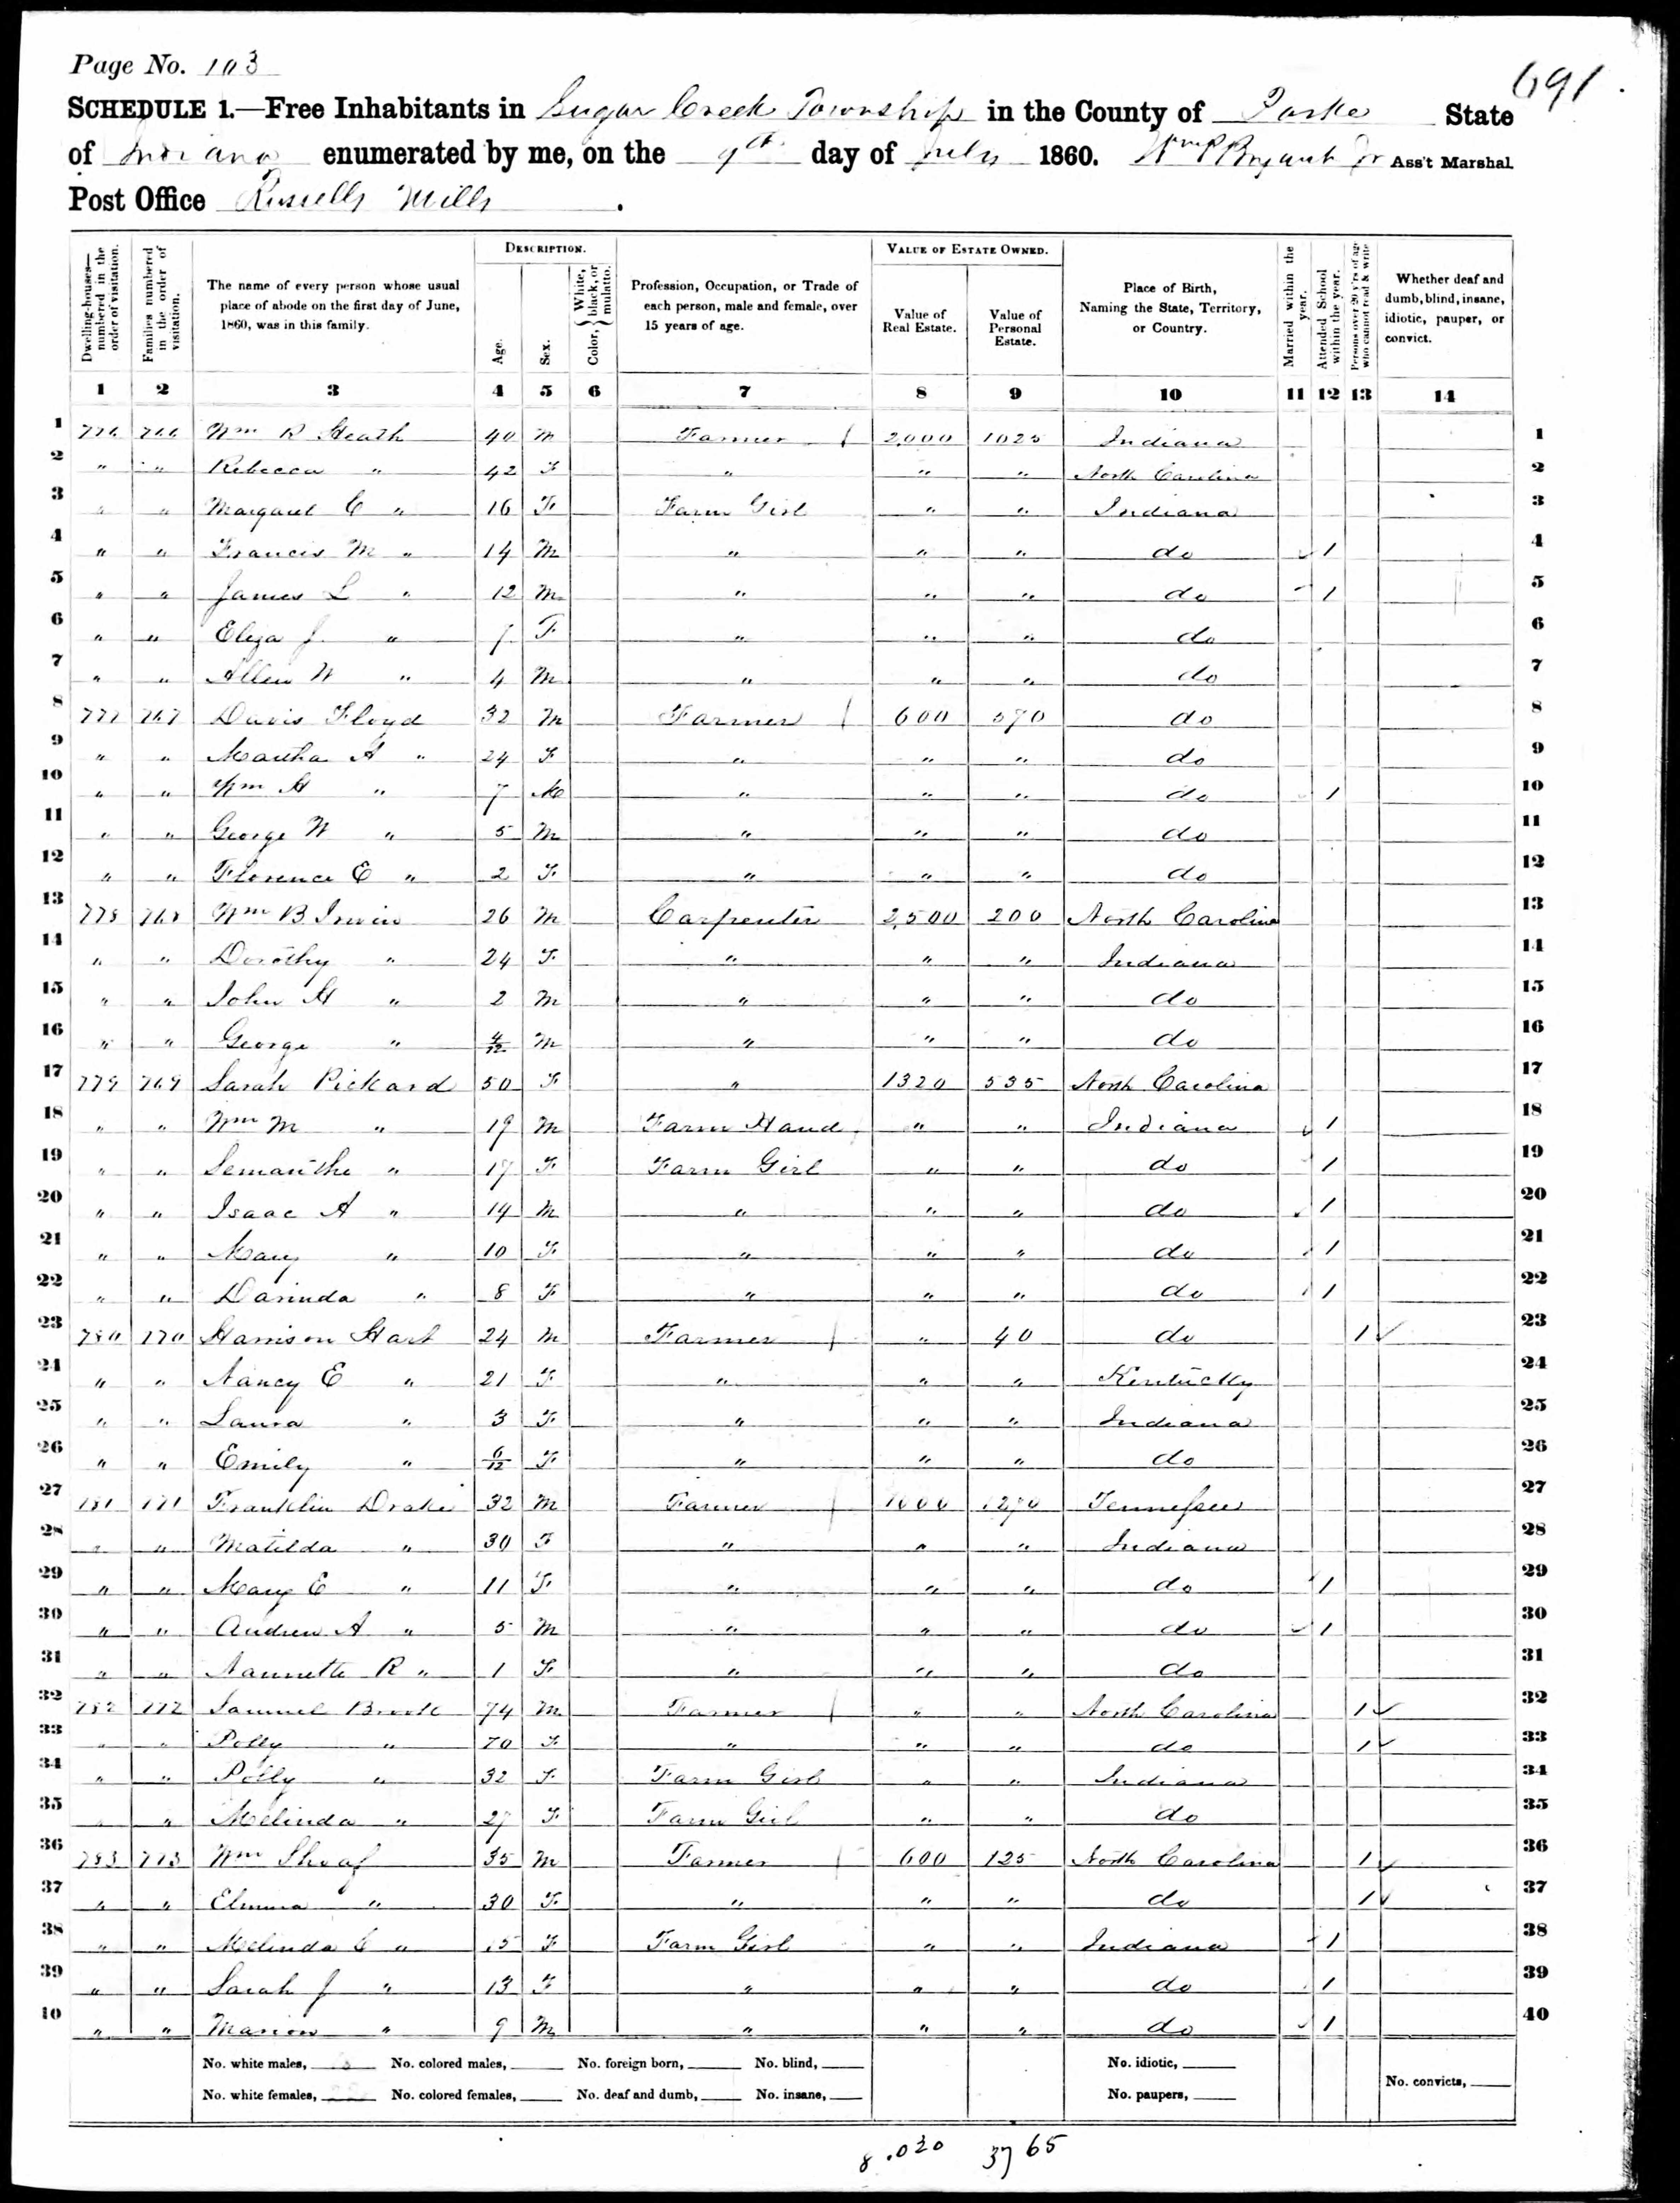 Page No. 103
691
SCHEDULE 1.—Free Inhabitants in Sugar Creek Township in the County of Parke State
of Indiana enumerated by me, on the 9th day of July 1860. Wm P Bryant Jr Ass't Marshal
Post Office Russells Mills.
Dwelling-houses—numbered in the order of visitation. Families numbered in the order of visitation. The name of every person whose usual place of abode on the first day of June, 1860, was in this family. DESCRIPTION. Age. Sex. Color, { White, black, or mulatto. Profession, Occupation, or Trade of each person, male and female, over 15 years of age. VALUE OF ESTATE OWNED. Value of Real Estate. Value of Personal Estate. Place of Birth, Naming the State, Territory, or Country. Married within the year. Attended School within the year. Persons over 20 y'rs of age who cannot read & write Whether deaf and dumb, blind, insane, idiotic, pauper, or convict.
1 2 3 4 5 6 7 8 9 10 11 12 13 14
1 776 766 Wm R Heath 40 M Farmer 2,000 1025 Indiana 1
2 " " Rebecca " 42 F " " " North Carolina 2
3 " " Margaret C " 16 F Farm Girl " " Indiana 3
4 " " Francis M " 14 M " " " do 1 4
5 " " James L " 12 M " " " do 1 5
6 " " Eliza J " 7 F " " " do 6
7 " " Allen W " 4 M " " " do 7
8 777 767 Davis Floyd 32 M Farmer 600 570 do 8
9 " " Martha A " 24 F " " " do 9
10 " " Wm H " 7 M " " " do 1 10
11 " " George W " 5 M " " " do 11
12 " " Florence E " 2 F " " " do 12
13 778 768 Wm B Irwin 26 M Carpenter 2,500 200 North Carolina 13
14 " " Dorothy " 24 F " " " Indiana 14
15 " " John H " 2 M " " " do 15
16 " " George " 4/12 M " " " do 16
17 779 769 Sarah Pickard 50 F " 1320 535 North Carolina 17
18 " " Wm M " 19 M Farm Hand " " Indiana 1 18
19 " " Semantha " 17 F Farm Girl " " do 1 19
20 " " Isaac A " 14 M " " " do 1 20
21 " " Mary " 10 F " " " do 1 21
22 " " Darinda " 8 F " " " do 1 22
23 780 770 Harrison Hart 24 M Farmer " 40 do 1 ✓ 23
24 " " Nancy E " 21 F " " " Kentucky 24
25 " " Laura " 3 F " " " Indiana 25
26 " " Emily " 6/12 F " " " do 26
27 781 771 Franklin Drake 32 M Farmer 1000 1270 Tennessee 27
28 " " Matilda " 30 F " " " Indiana 28
29 " " Mary E " 11 F " " " do 1 29
30 " " Andrew A " 5 M " " " do 1 30
31 " " Nannette R " 1 F " " " do 31
32 782 772 Samuel 74 M Farmer " " North Carolina 1 ✓ 32
33 " " Polly " 70 F " " " do 1 ✓ 33
34 " " Polly " 32 F Farm Girl " " Indiana 34
35 " " Melinda " 27 F Farm Girl " " do 35
36 783 773 Wm Sheaf 35 M Farmer 600 125 North Carolina 1 ✓ 36
37 " " Elmina " 30 F " " " do 1 ✓ 37
38 " " Melinda C " 15 F Farm Girl " " Indiana 1 38
39 " " Sarah J " 13 F " " " do 1 39
40 " " Marion " 9 M " " " do 1 40
No. white males, No. colored males, No. foreign born, No. blind, No. idiotic,
No. white females, No. colored females, No. deaf and dumb, No. insane, No. paupers, No. convicts,
8.020 3765